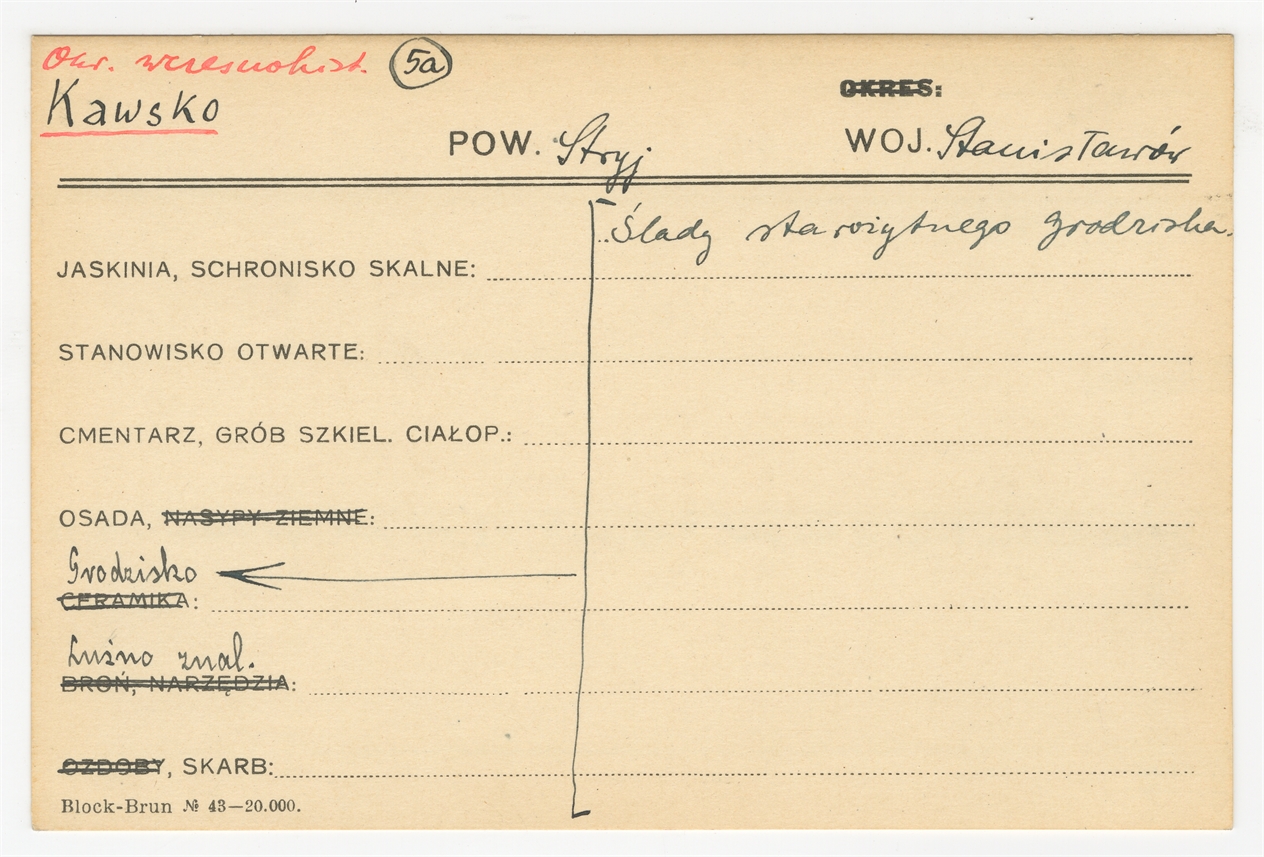 Okr. wczesnohist. 5a
Kawsko
OKRES:
POW. Stryj WOJ. Stanisławów
Ślady starożytnego grodziska.
JASKINIA, SCHRONISKO SKALNE:
STANOWISKO OTWARTE:
CMENTARZ, GRÓB SZKIEL. CIAŁOP.:
OSADA, NASYPY ZIEMNE:
Grodzisko
CERAMIKA:
Luźno znal.
BROŃ, NARZĘDZIA:
OZDOBY, SKARB:
Block-Brun № 43—20.000.